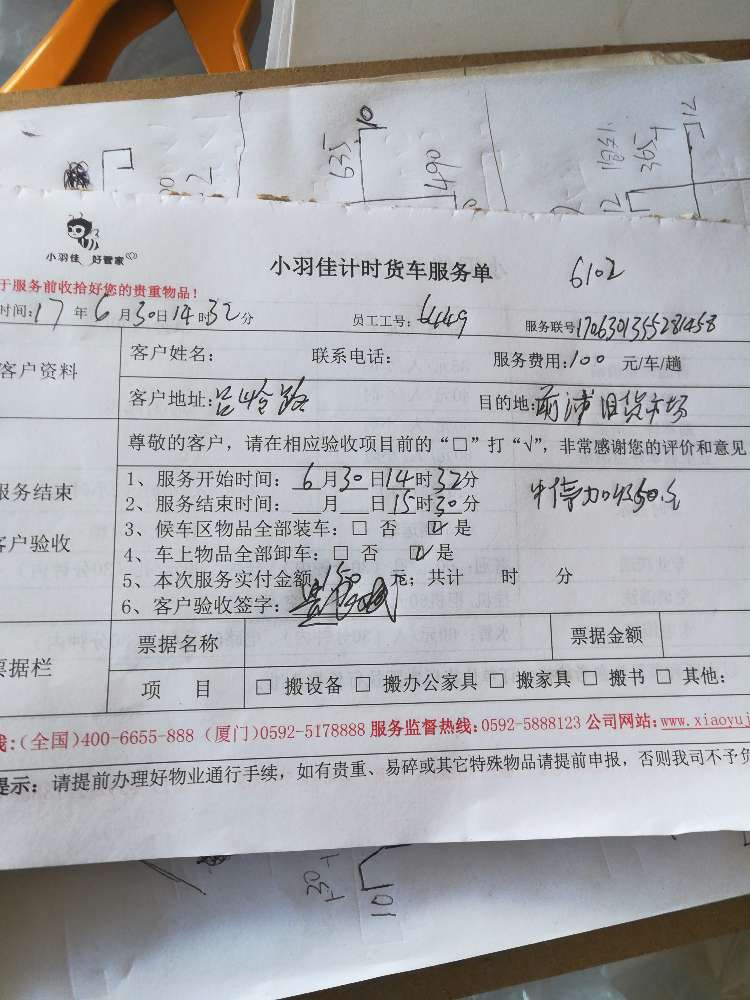 635 10
490
365
12
小羽佳 好管家
小羽佳计时货车服务单
6102
于服务前收拾好您的贵重物品!
时间:17年6月30日14时32分 员工工号:6449 服务联号1706301355281458
客户资料
客户姓名: 联系电话: 服务费用:100 元/车/趟
客户地址:吕岭路 目的地:前浦旧货市场
服务结束
客户验收
尊敬的客户,请在相应验收项目前的“□”打“√”,非常感谢您的评价和意见
1、服务开始时间:6月30日14时32分
2、服务结束时间:___月___日15时30分
3、候车区物品全部装车:□ 否 ☑ 是
4、车上物品全部卸车:□ 否 ☑ 是
5、本次服务实付金额:150元;共计 时 分
6、客户验收签字:
票据栏
票据名称 票据金额
项 目 □ 搬设备 □ 搬办公家具 □ 搬家具 □ 搬书 □ 其他:
线:(全国)400-6655-888 (厦门)0592-5178888 服务监督热线:0592-5888123 公司网站:www.xiaoyuj
提示:请提前办理好物业通行手续,如有贵重、易碎或其它特殊物品请提前申报,否则我司不予负
30
10